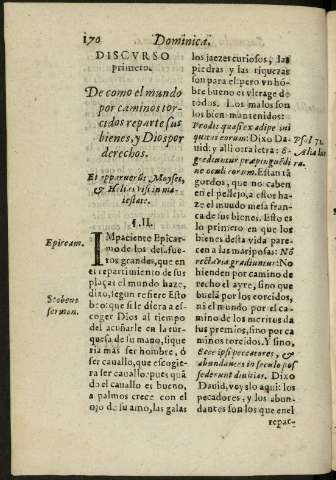 170 Dominica.
DISCVRSO
primero.
De como el mundo
por caminos tor-
cidos reparte sus
bienes, y Dios por
derechos.
Et apparuerūt Moyses,
& Helias visi in ma-
iestate.
§. II.
Epiream.
IMpaciente Epicar-
mo de los desafue-
ros grandes, que en
el repartimiento de sus
plaças el mundo haze,
dixo, segun refiere Esto
Stobeus
sermon.
beo: que si le diera a es-
coger Dios al tiempo
del acuñarle en la tur-
quesa de su mano, si que
ria mas ser hombre, ó
ser cauallo, que escogie-
ra ser cauallo: pues quā
do el cauallo es bueno,
a palmos crece con el
ojo de su amo, las galas
los jaezes curiosos, las
piedras y las riquezas
son para el: pero vn hō-
bre bueno es vltrage de
todos. Los malos son los
bien mantenidos:
Prodit quasi ex adipe ini
quitas eorum: Dixo Da
Psol 72.
uid; y alli otra letra: E-
Alia lit
gredimur præ pinguedi
ra.
ne oculi eorum. Estan tā
gordos, que no caben
en el pellejo, a estos ha-
ze el mundo mesa fran-
ca de sus bienes. Esto es
lo primero en que los
bienes desta vida pare-
cen a las mariposas: Nō
recta via gradiuntur: No
hienden por camino de
recho el ayre, sino que
buela por los torcidos,
ni el mundo por el ca-
mino de los meritos da
sus premios, sino por ca
minos torcidos. Y sino,
Ecce ipsi peccatores, &
abundantes in seculo pos
sederunt diuitias. Dixo
Dauid, veys lo aqui: los
pecadores, y los abun-
dantes son los que en el
repar-